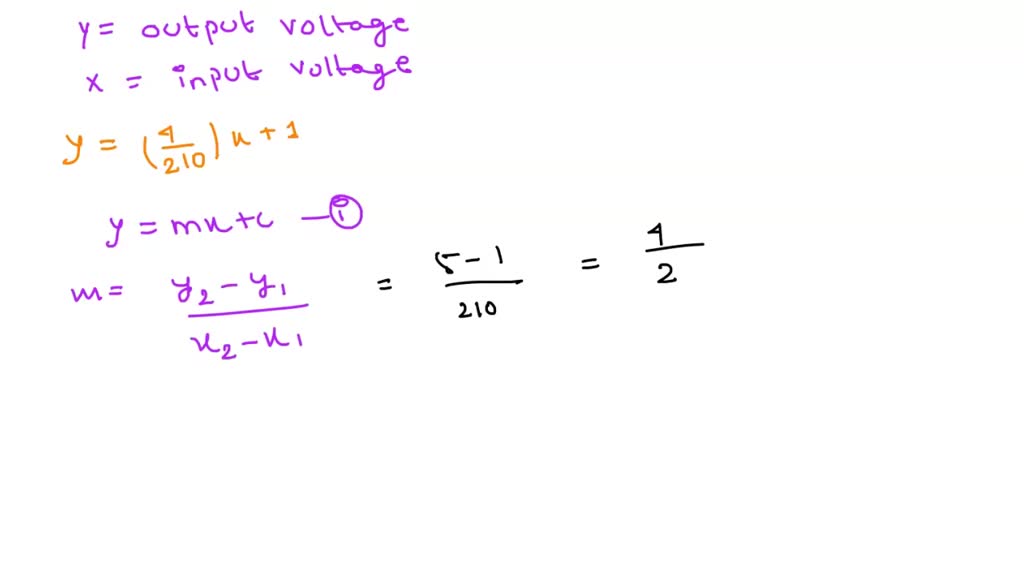 y = output voltage
x = input voltage
y = (4/210) x + 1
y = mx+c —①
m = (y₂ - y₁)/(x₂ - x₁) = (5-1)/210 = 4/2